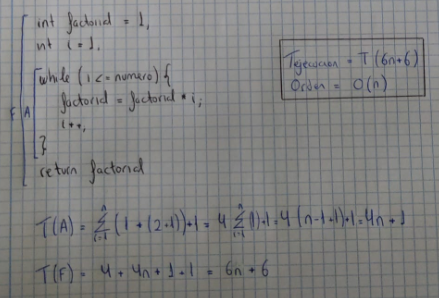 int factorial = 1,
int i = 1,
while (i <= numero) {
factorial = factorial * i;
i++,
}
return factorial
F A
Tejecucion = T(6n+6)
Orden = O(n)
T(A) = n∑i=1 (1 + (2+1))+1 = 4 n∑i=1 (1)+1 = 4 (n-1+1)+1 = 4n + 1
T(F) = 4 + 4n + 1 + 1 = 6n + 6